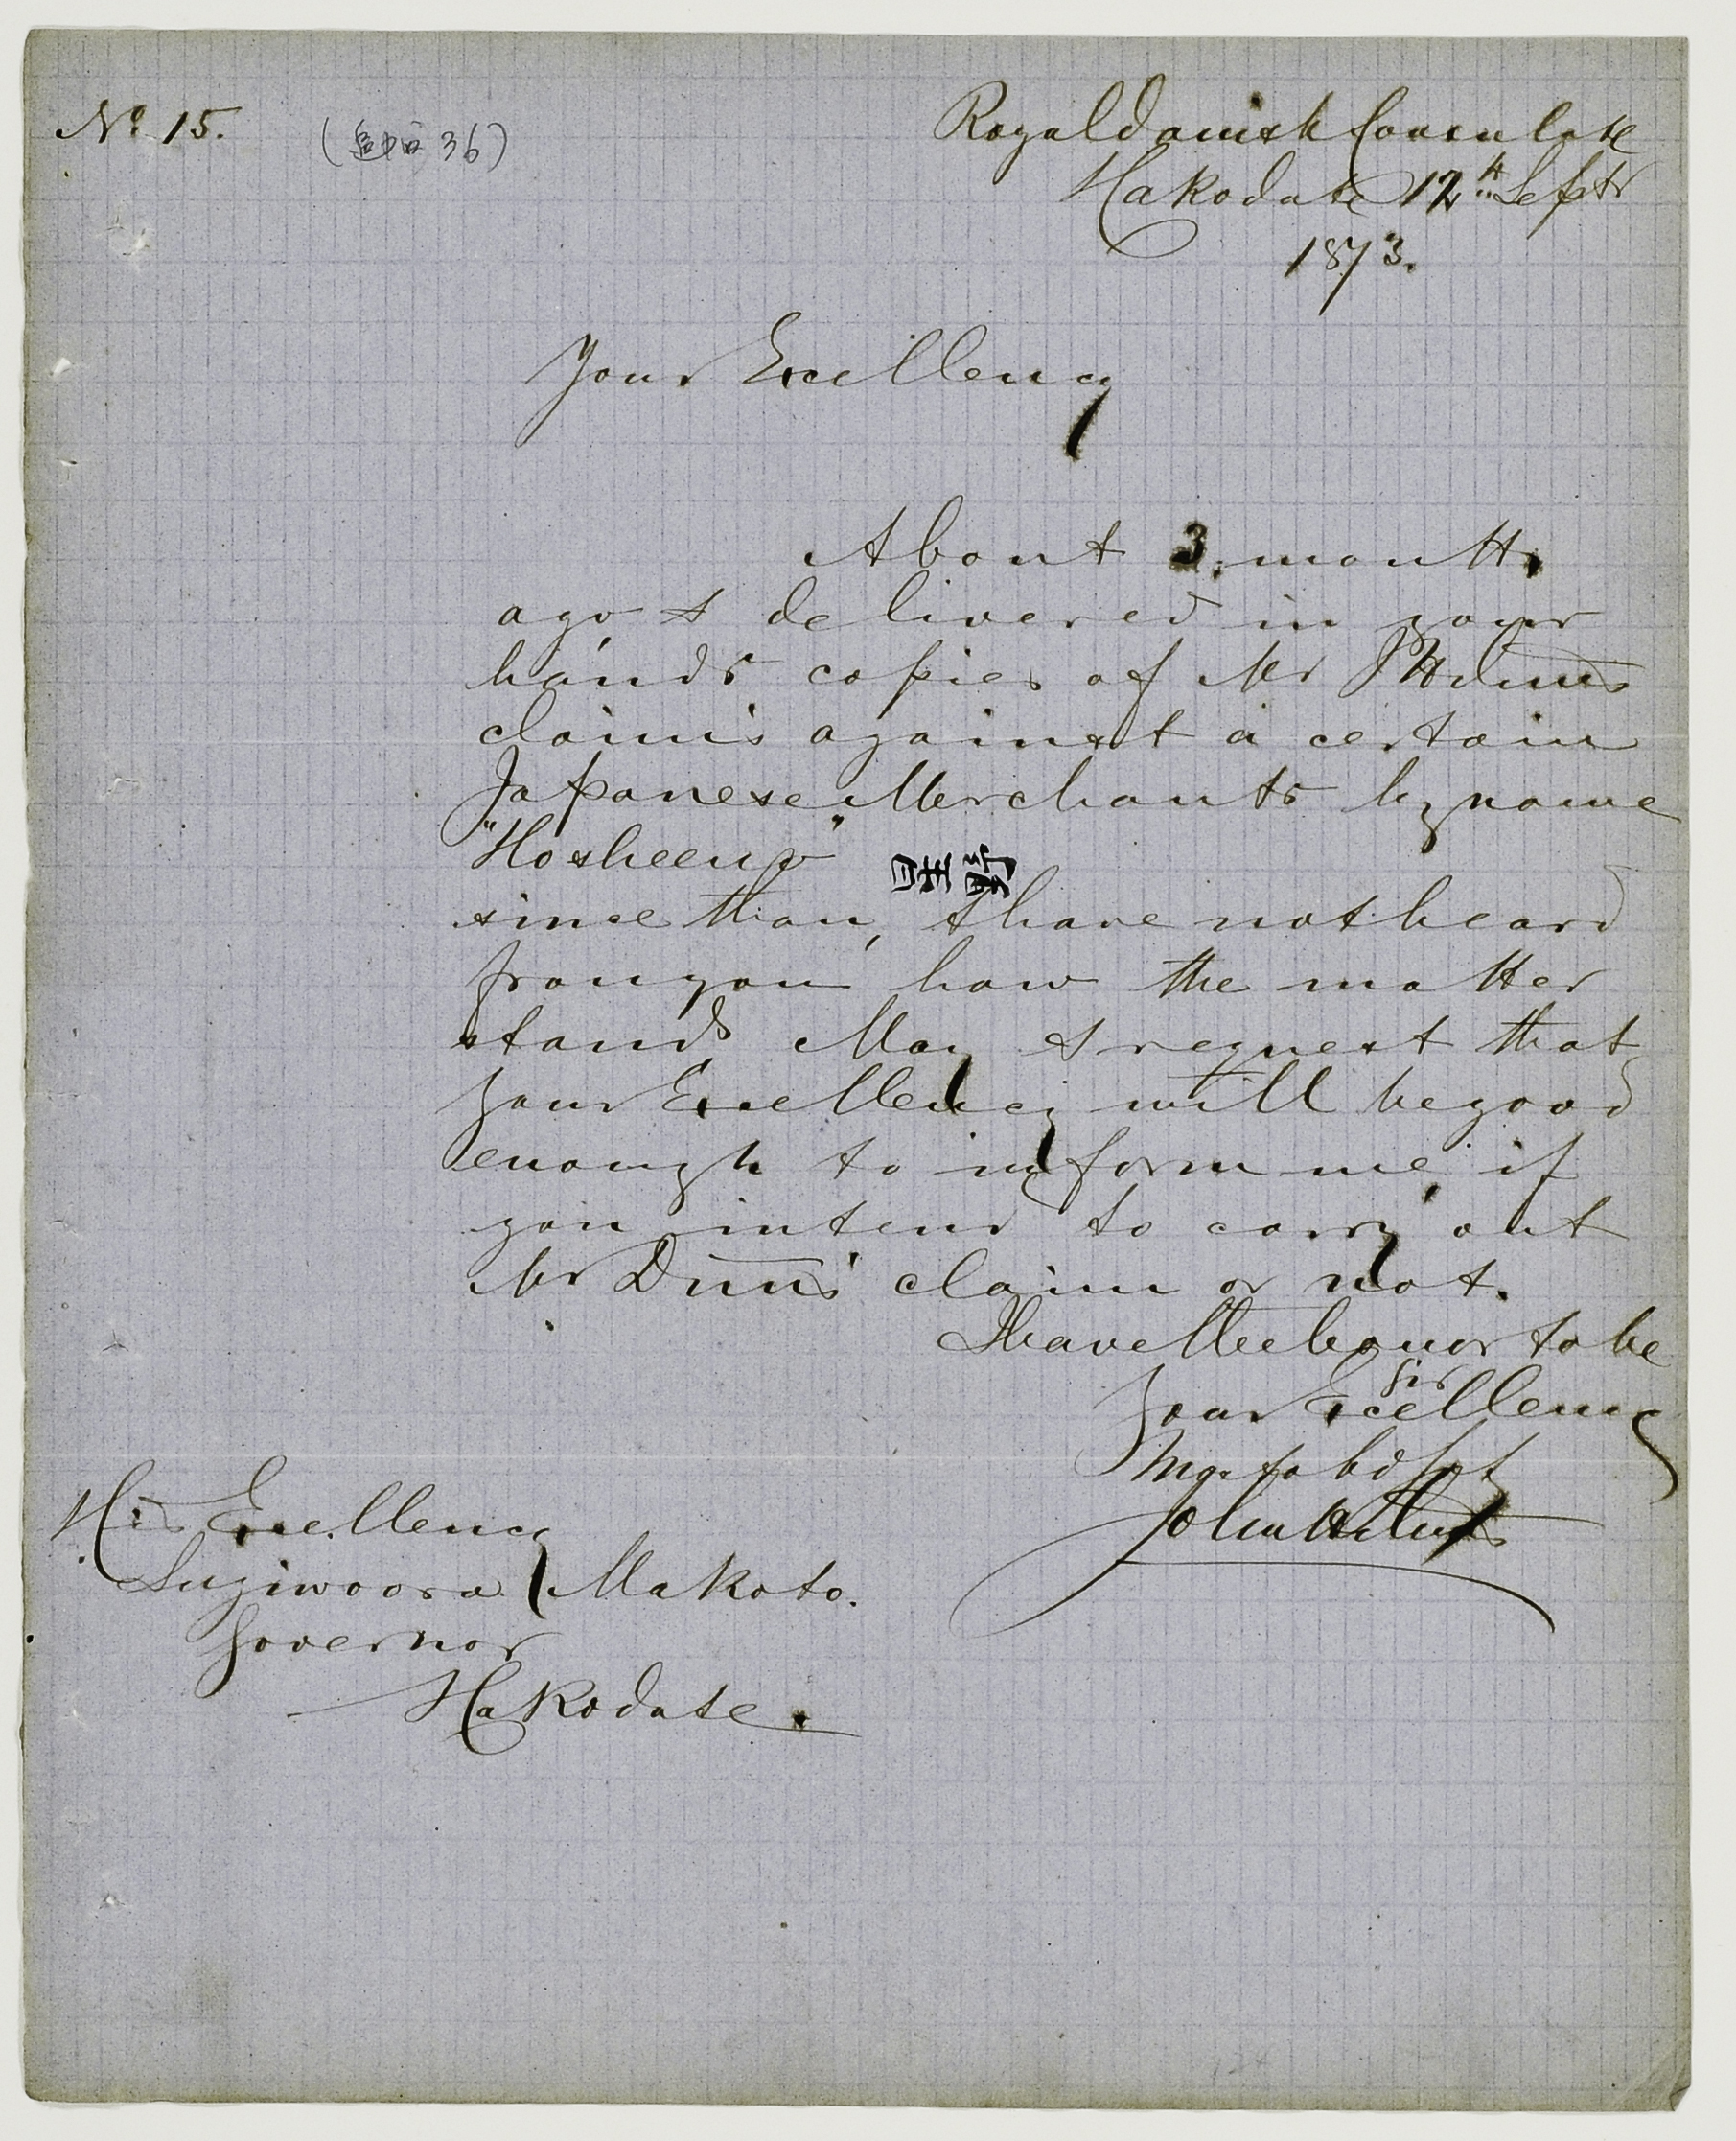 No. 15.
36)
Royal danish Consulate
Hakodate 12th Septr
1873.
Your Excellency
About 3. month
ago I delivered in your
hands copies of Mr
claims against a certain
Japanese Merchants by name
"Hosheeno" 星野
since than, I have not heard
from you how the matter
stands May I request that
your Excellency will be good
enough to inform me, if
you intend to carry out
Mr Duus' claim or not.
I have the honor to be
Sir
Your Excellency
His Excellency
Sugiwoora Makoto.
Governor
Hakodate.